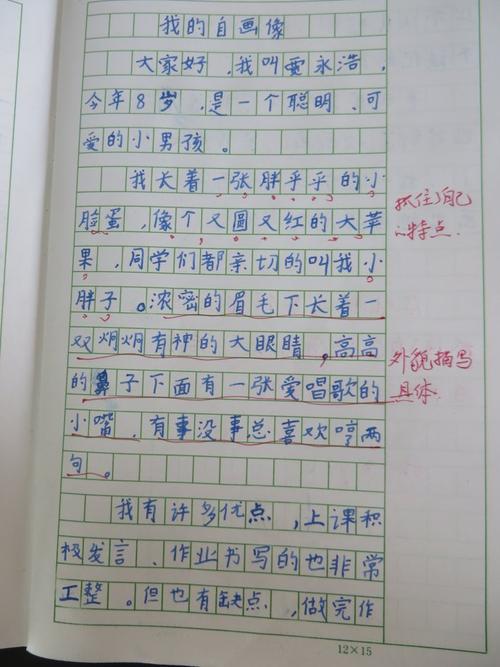 我的自画像
大家好,我叫雯永浩,
今年8岁,是一个聪明、可
爱的小男孩。
我长着一张胖乎乎的小
脸蛋,像个又圆又红的大苹
果,同学们都亲切的叫我小
胖子。浓密的眉毛下长着一
双炯炯有神的大眼睛,高高
的鼻子下面有一张爱唱歌的
小嘴,有事没事总喜欢哼两
句。
我有许多优点,上课积
极发言、作业书写的也非常
工整。但也有缺点,做完作
抓住自己
的特点.
外貌描写
具体.
12×15